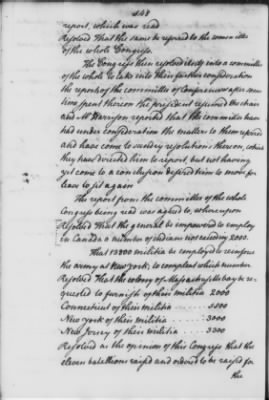 148
report, which was read
Resolved That the same be referred to the committee
of the whole Congress.
The Congress then resolved itself into a committee
of the whole to take into their farther consideration
the report of the committee of Conference after some
time spent thereon the president resumed the chair
and Mr Harrison reported that the committee have
had under consideration the matter to them referred
and have come to sundry resolutions thereon, which
they have directed him to report, but not having
yet come to a conclusion desired him to move for
leave to sit again
The report from the committee of the whole
Congress being read was agreed to, whereupon
Resolved That the general be empowered to employ
in Canada a number of Indians not exceeding 2000.
That 13800 militia be employed to reinforce
the army at New York, to compleat which number
Resolved That the colony of Massachusetts bay be re-
quested to furnish of their militia 2000
Connecticut of their militia 5500
New York of their militia 3000
New Jersey of their militia 3300
Resolved as the opinion of this Congress that the
eleven batallions raised and ordered to be raised for
the